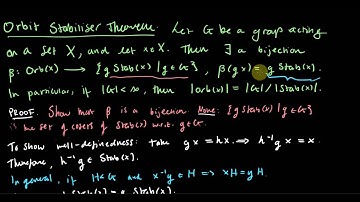 Orbit Stabiliser Theorem. Let G be a group acting
on a set X, and let x∈X. Then ∃ a bijection
β: Orb(x) → {g Stab(x) | g∈G}, β(gx) = g Stab(x).
In particular, if |G| < ∞, then |Orb(x)| = |G| / |Stab(x)|.
PROOF. Show that β is a bijection Note: {g Stab(x) | g∈G}
is the set of cosets of Stab(x) w.r.t. g∈G.
To show well-definedness: take gx = hx ⟹ h⁻¹gx = x.
Therefore, h⁻¹g ∈ Stab(x).
In general, if H<G and x⁻¹y ∈ H ⟹ xH = yH.
Stab(x) = g Stab(x).